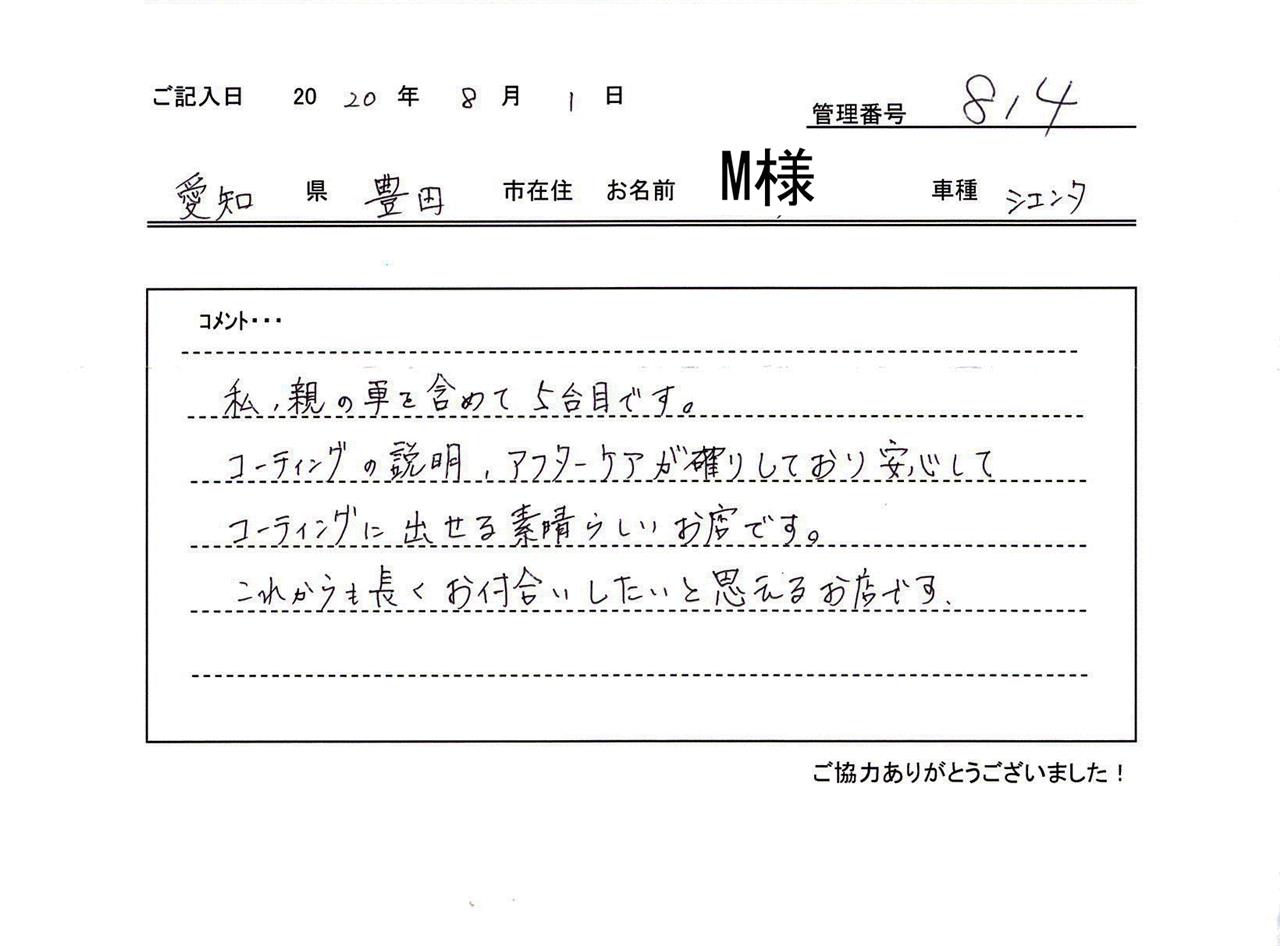 ご記入日 2020年 8月 1日
管理番号 814
愛知県 豊田市在住 お名前 M様 車種 シエンタ
コメント・・・
私、親の車を含めて5台目です。
コーティングの説明、アフターケアが確りしており安心して
コーティングに出せる素晴らしいお店です。
これからも長くお付合いしたいと思えるお店です.
ご協力ありがとうございました！